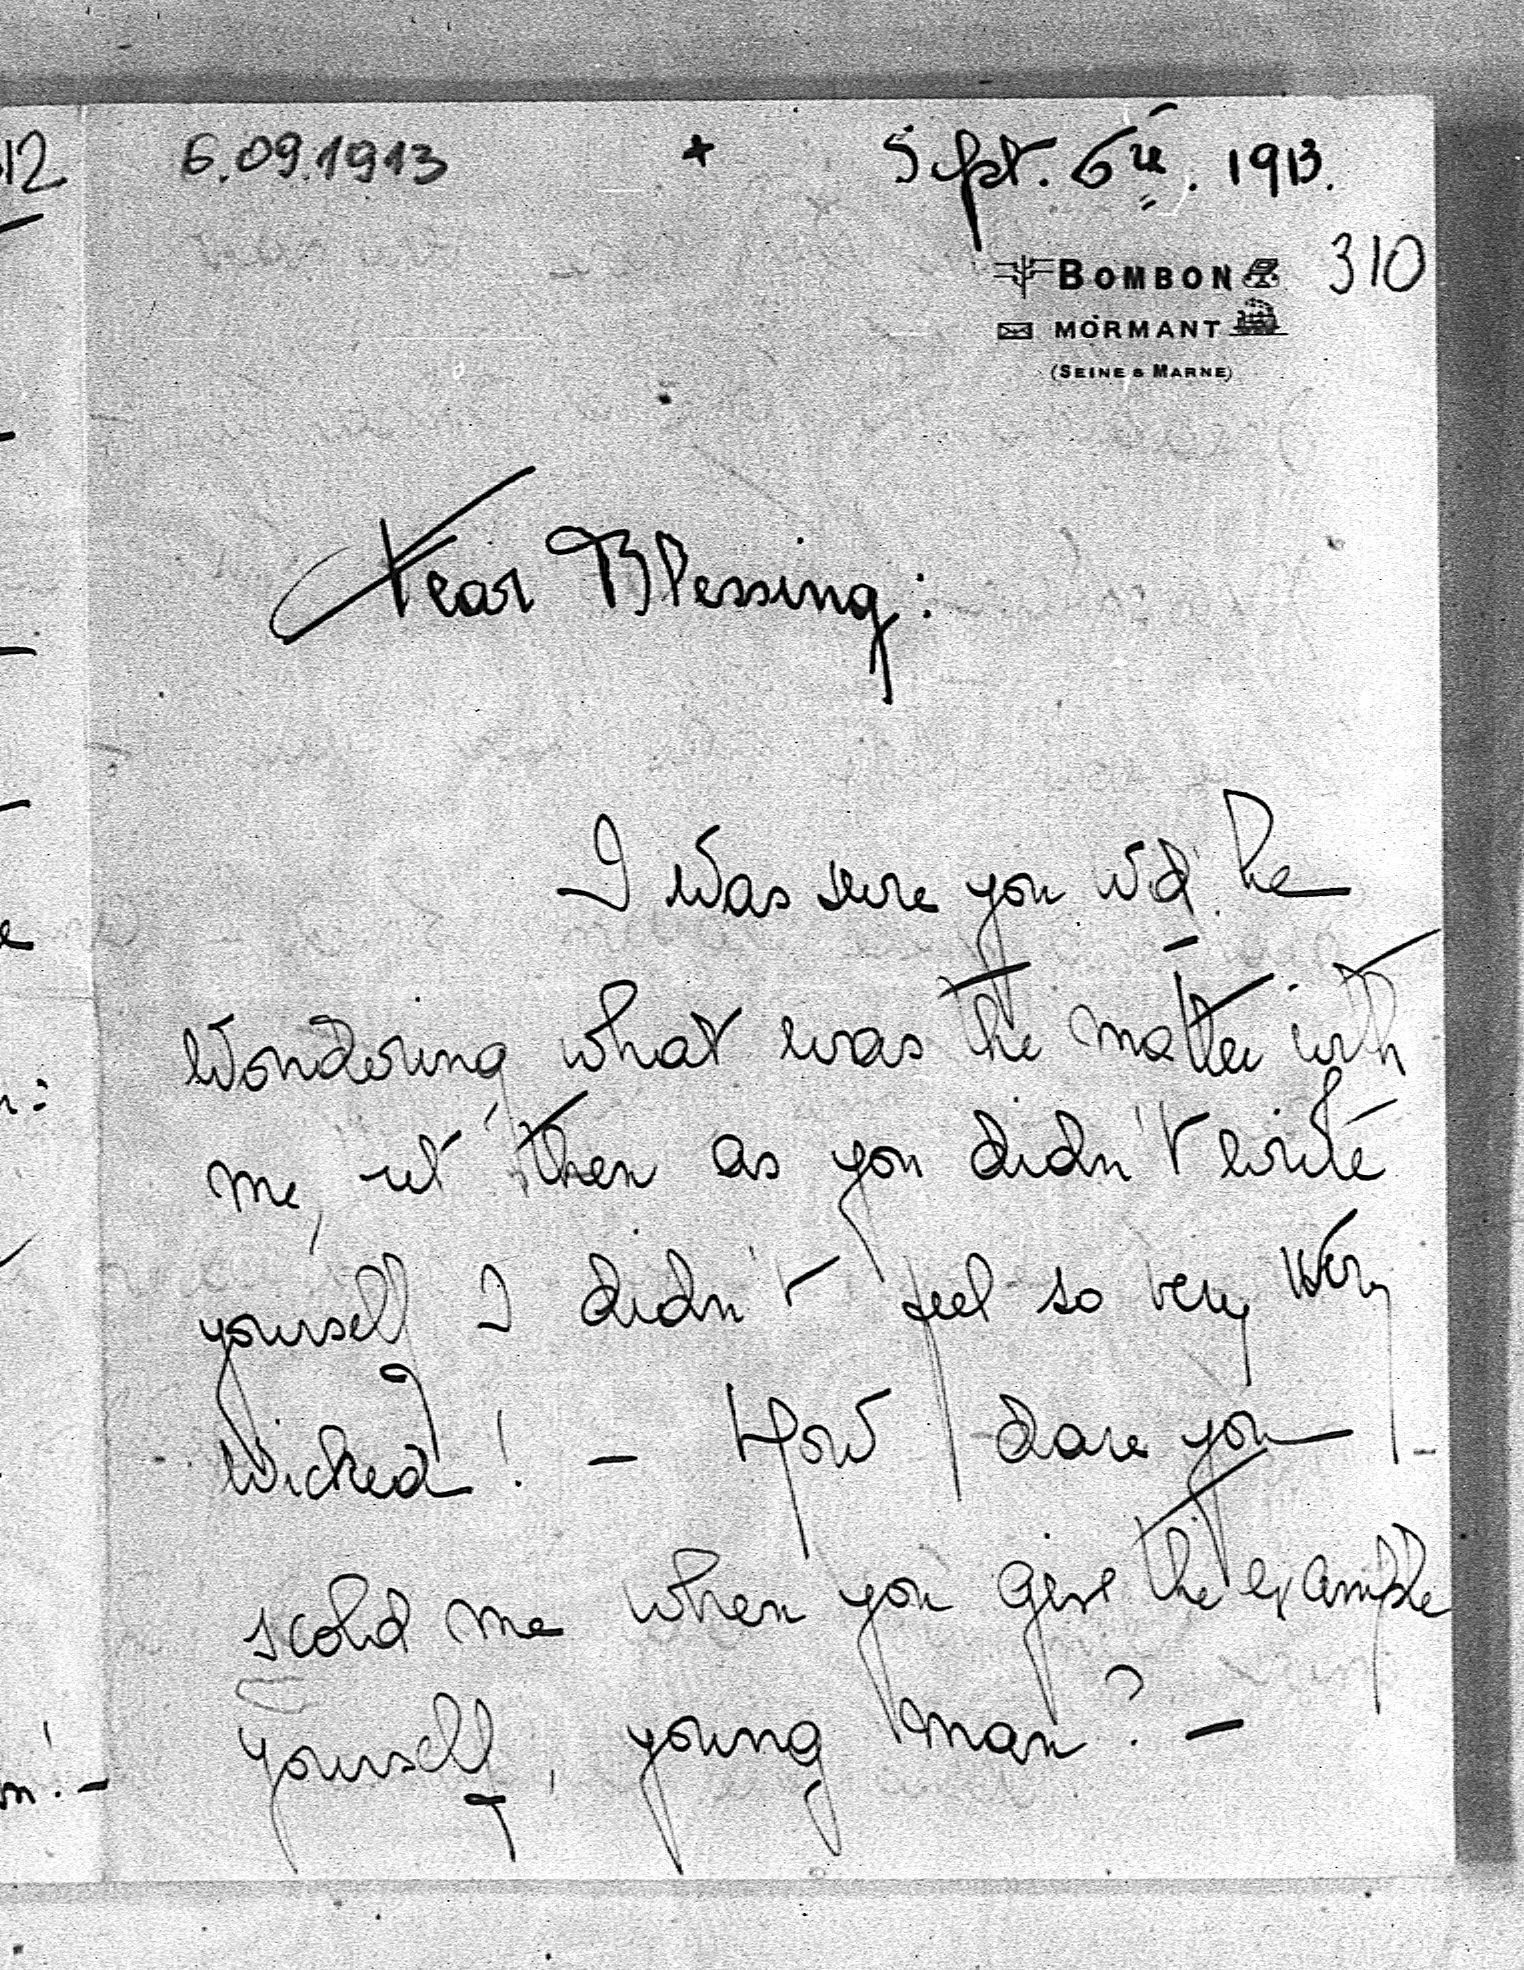 12
6.09.1913
Sept. 6th. 1913.
310
BOMBON
MORMANT
(SEINE & MARNE)
Dear Blessing:
I was sure you wd. be
wondering what was the matter with
me, but then as you didn't write
yourself I didn't feel so very very
wicked! – How dare you
scold me when you give the example
yourself, young man? –